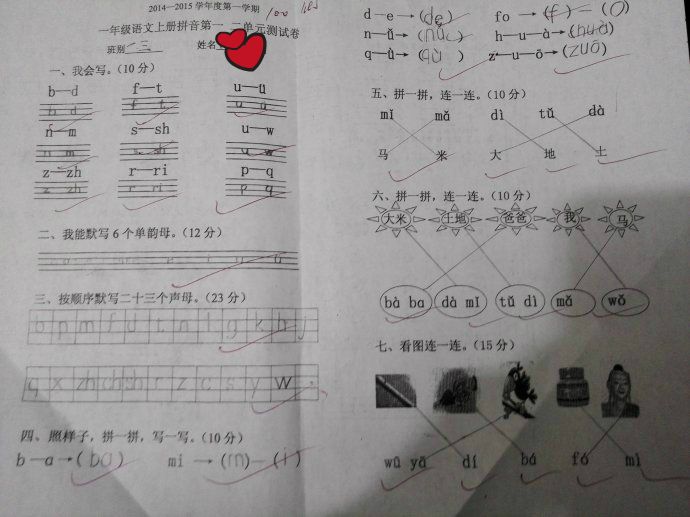 2014—2015 学年度第一学期
100
一年级语文上册拼音第一、二单元测试卷
班别 一三 姓名
一、我会写。(10 分)
b—d f—t u—ü
b d f t u ü
n—m s—sh u—w
n m s sh u w
z—zh r—ri p—q
z zh r ri p q
二、我能默写 6 个单韵母。(12 分)
三、按顺序默写二十三个声母。(23 分)
b p m f d t n l g k h j
q x zh ch sh r z c s y w
四、照样子，拼一拼，写一写。(10 分)
b—a→(ba) mi →(m)—(i)
d—e→(de) fo →(f)—(o)
n—ǔ→(nǔ) h—u—à→(huà)
q—ǜ→(qù) z—u—ō→(zuō)
五、拼一拼，连一连。(10 分)
mǐ mǎ dì tǔ dà
马 米 大 地 土
六、拼一拼，连一连。(10 分)
大米 土地 爸爸 我 马
bà ba dà mǐ tǔ dì mǎ wǒ
七、看图连一连。(15 分)
wū yā dí bá fó mì